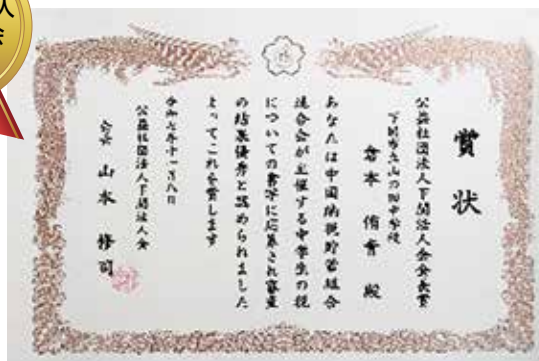 賞状
公益社団法人下関法人会会長賞
下関市立山の田中学校
倉本 侑 殿
あなたは中国納税貯蓄組合
連合会が主催する中学生の税
についての書写に応募され審査
の結果優秀と認められました
よってこれを賞します
令和七年十一月八日
公益社団法人下関法人会
会長 山本 修司